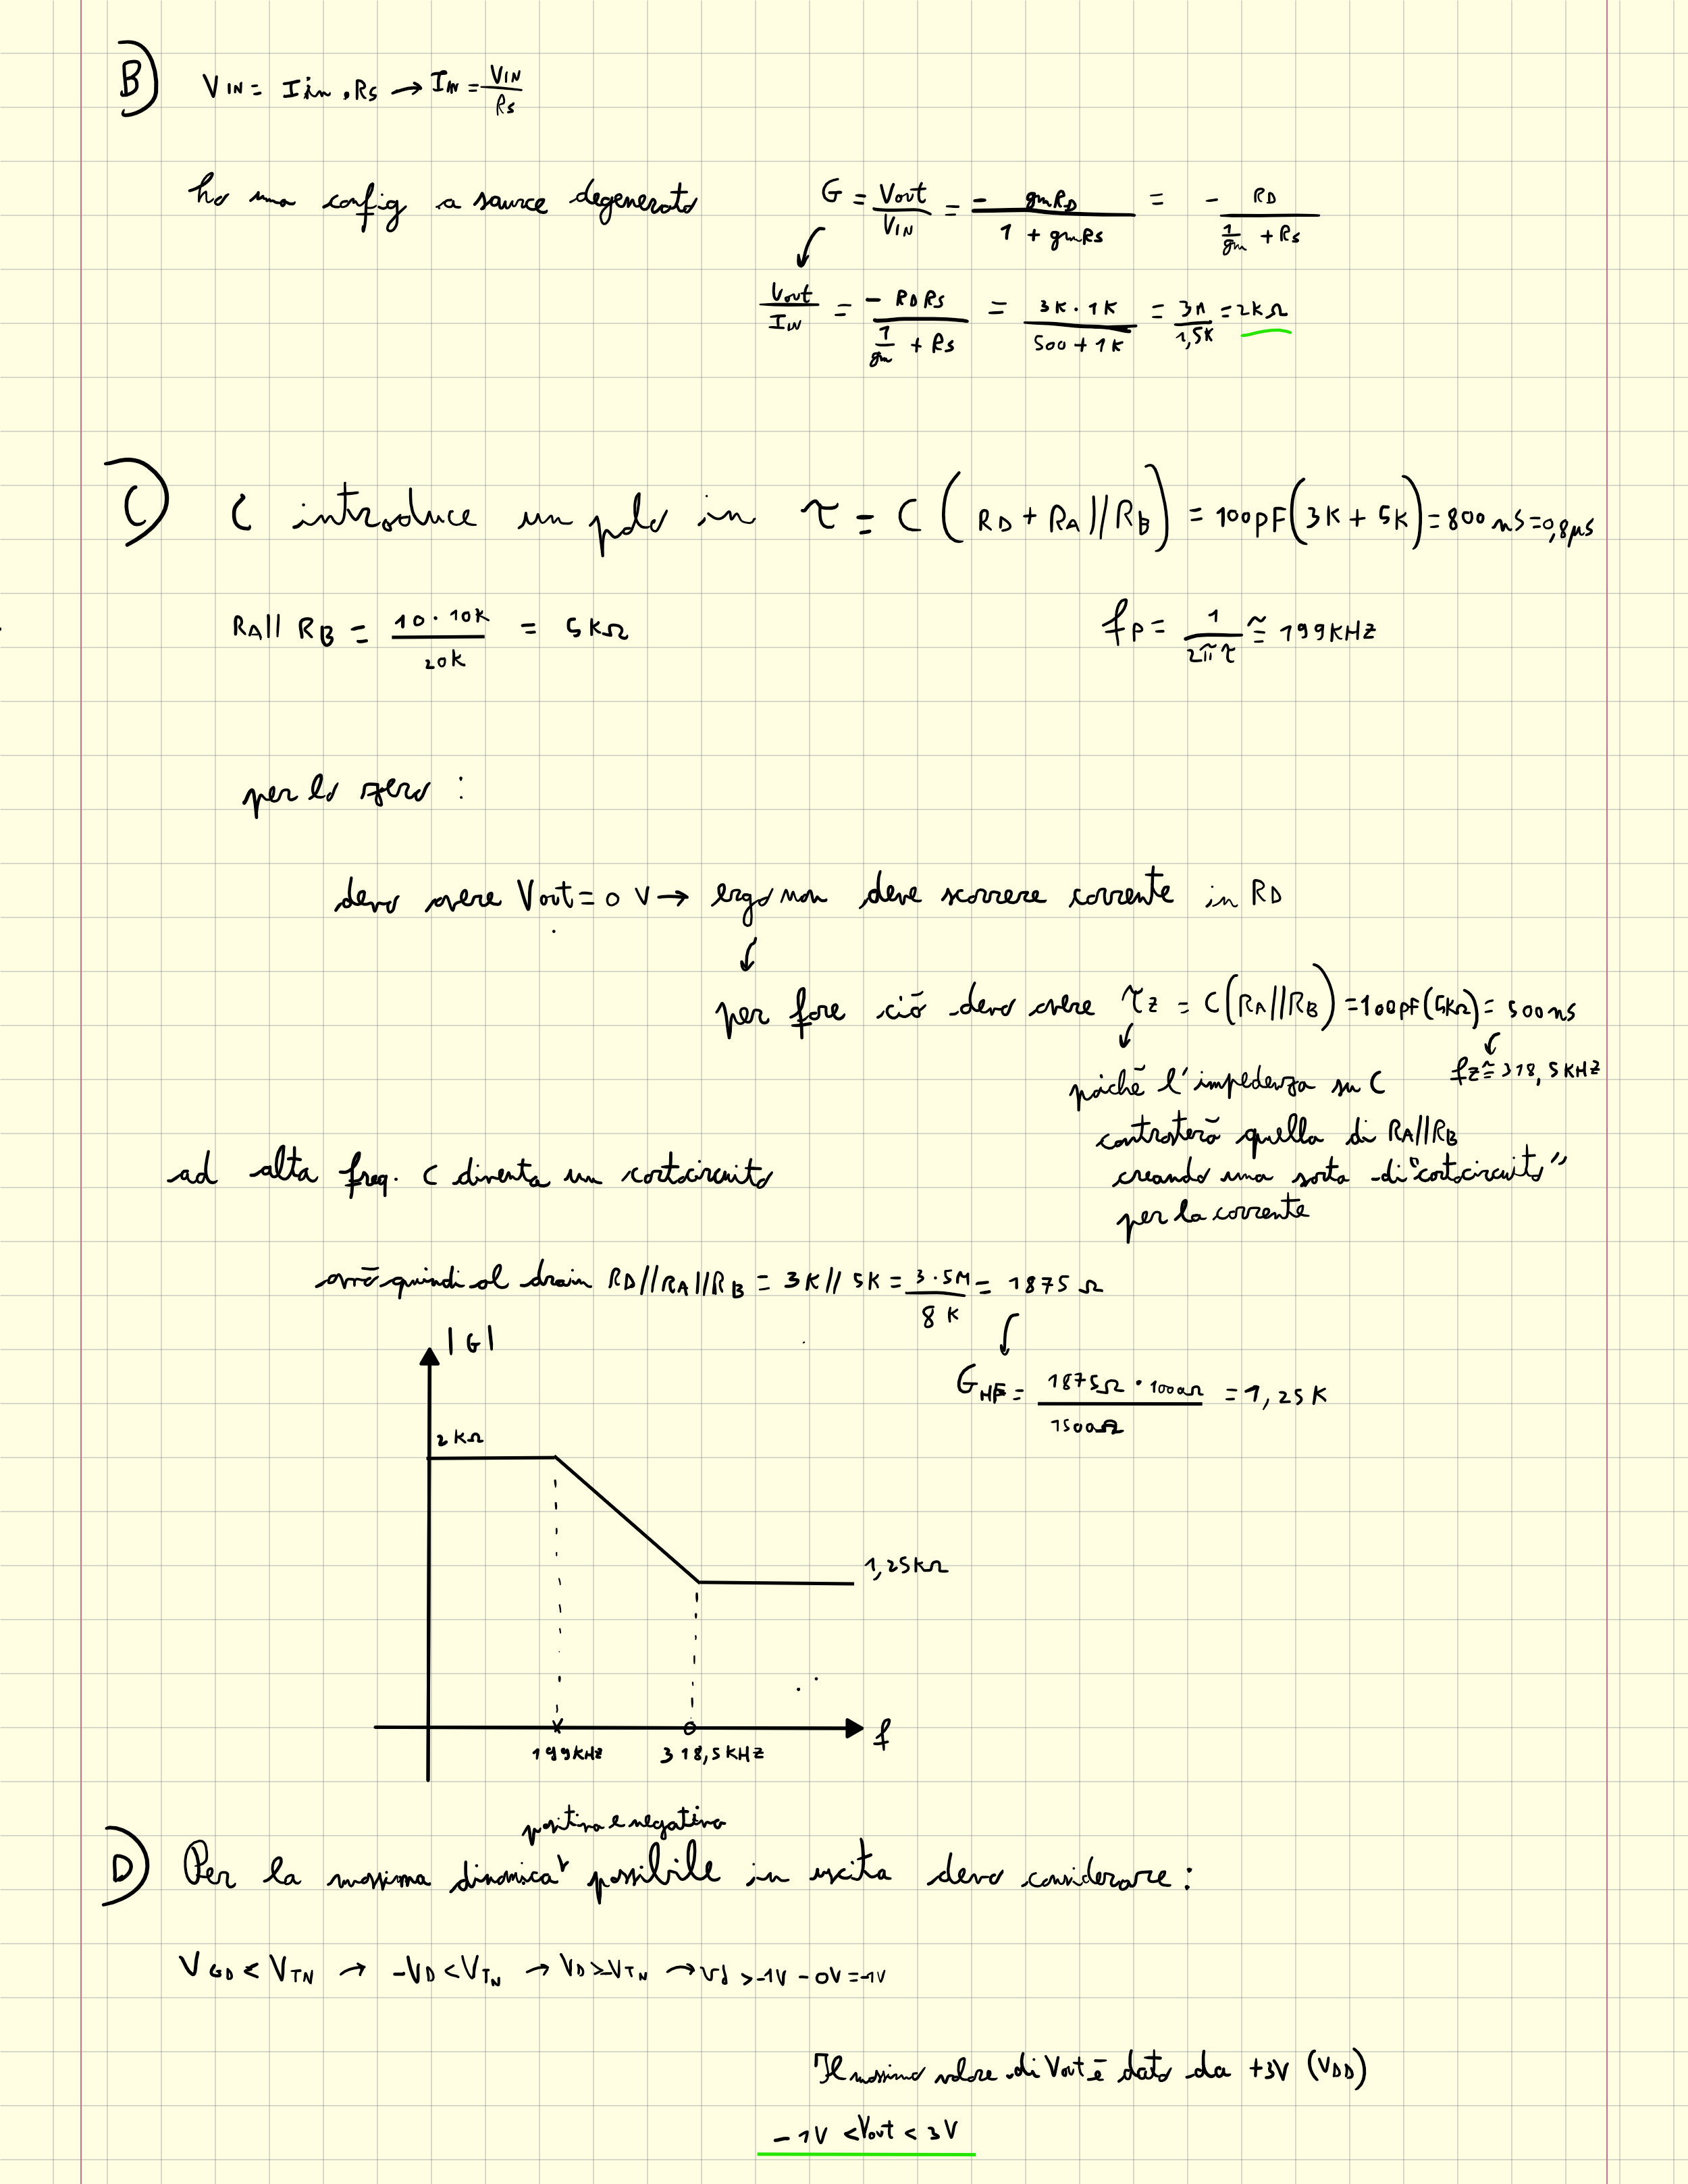 B) VIN = Iin . RS → IIN = VIN / RS
ho una config a source degenerato
G = Vout / VIN = - gmRD / 1 + gmRS = - RD / 1/gm + RS
Vout / IIN = - RD RS / 1/gm + RS = 3K · 1K / 500 + 1K = 3M / 1,5K = 2kΩ
C) C introduce un polo in τ = C (RD + RA//RB) = 100pF(3K + 5K) = 800 ns = 0,8μs
RA|| RB = 10 · 10K / 20K = 5KΩ
fP = 1 / 2πτ ≅ 199KHZ
per lo zero :
devo avere Vout = 0 V → ergo non deve scorrere corrente in RD
per fare ciò devo avere τz = C(RA//RB) = 100pF(5KΩ) = 500ns
fz ≅ 318,5KHZ
poichè l'impedenza su C
contrasterà quella di RA//RB
creando una sorta di "cortocircuito"
per la corrente
ad alta freq. C diventa un cortocircuito
avrò quindi al drain RD//RA//RB = 3K // 5K = 3·5M / 8K = 1875 Ω
GHF = 1875Ω · 1000Ω / 1500Ω = 1,25K
|G|
2KΩ
1,25KΩ
f
199KHZ 318,5KHZ
positiva e negativa
D) Per la massima dinamica possibile in uscita devo considerare :
VGD < VTN → -VD < VTN → VD > -VTN → Vd > -1V - 0V = -1V
Il massimo valore di Vout è dato da +3V (VDD)
-1V < Vout < 3V